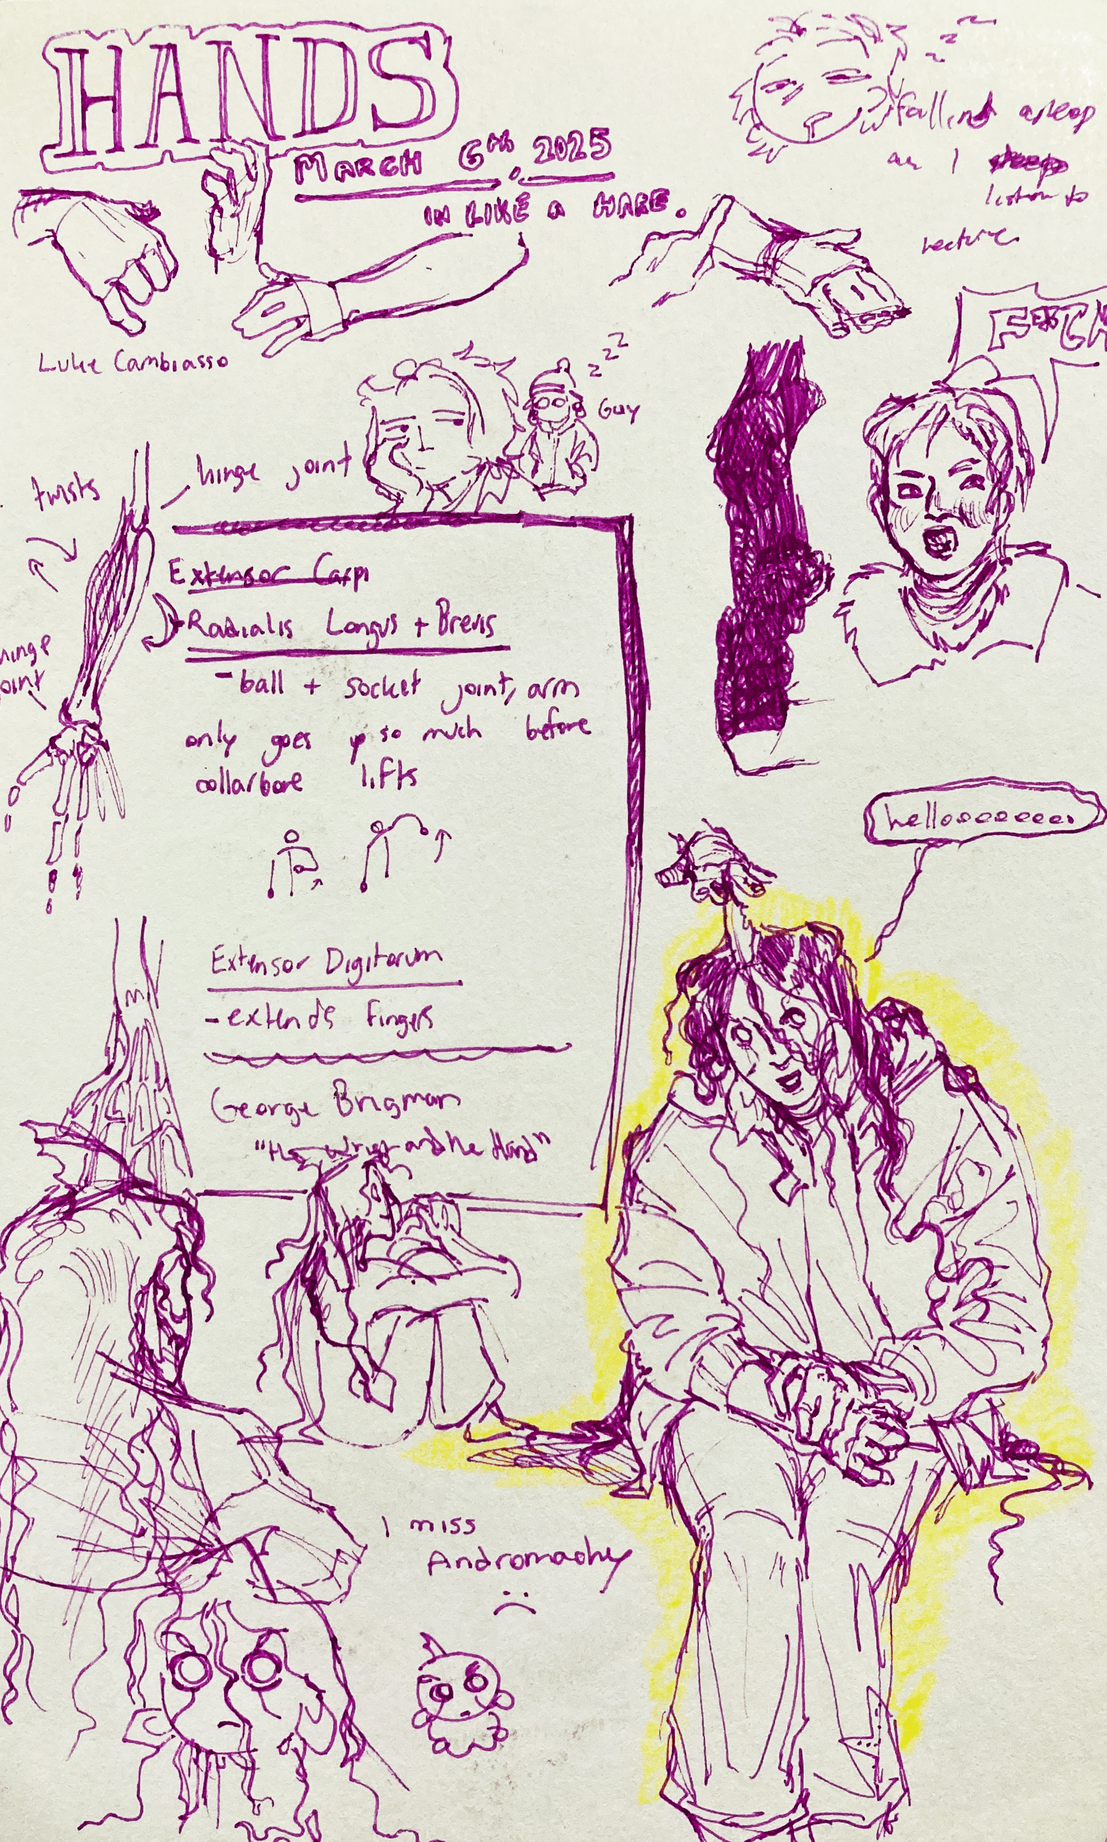 HANDS
MARCH 6th, 2025
IN LIKE A HARE.
z z z
falling asleep
as I
listen to
lecture.
Luke Cambiasso
z z z
Guy
FETCH
twists
hinge joint
hinge
joint
Extensor Carpi
Radialis Longus + Brevis
- ball + socket joint, arm
only goes up so much before
collarbone lifts
hellooooooooo
Extensor Digitorum
- extends fingers
George Brigman
"The Wrist and the Hand"
I miss
Andromachy
:(